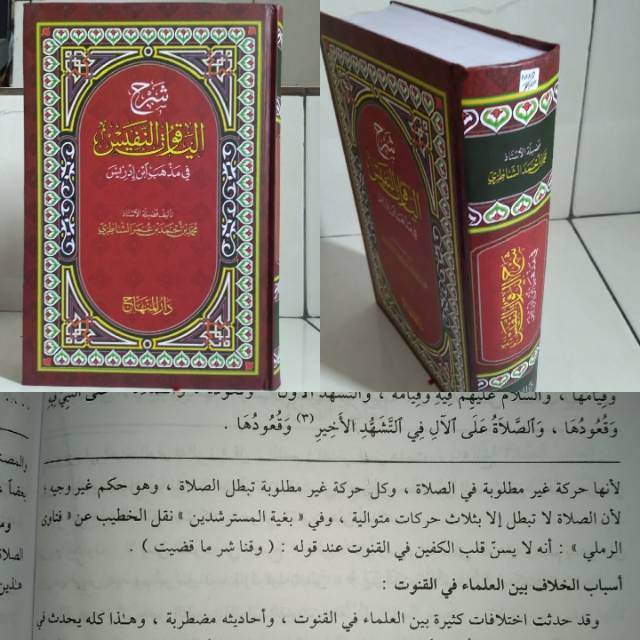 شرح
الياقوت النفيس
في مذهب ابن إدريس
تأليف فضيلة الأستاذ
محمد بن أحمد بن عمر الشاطري
دار المنهاج
شرح
الياقوت النفيس
في مذهب ابن إدريس
فضيلة الأستاذ
محمد بن أحمد الشاطري
شرح الياقوت النفيس
في مذهب ابن إدريس
وقيامها ، والسلام عليهم فيه وقيامه ، والتشهد
وَقُعُودُهَا ، وَٱلصَّلاَةُ عَلَى ٱلآلِ فِي ٱلتَّشَهُّدِ ٱلأَخِيرِ(٣) وَقُعُودُهَا .
لأنها حركة غير مطلوبة في الصلاة ، وكل حركة غير مطلوبة تبطل الصلاة ، وهو حكم غير وجيه ؛
لأن الصلاة لا تبطل إلا بثلاث حركات متوالية ، وفي « بغية المسترشدين » نقل الخطيب عن « فتاوى
الرملي » : أنه لا يسنّ قلب الكفين في القنوت عند قوله : ( وقنا شر ما قضيت ) .
أسباب الخلاف بين العلماء في القنوت :
وقد حدثت اختلافات كثيرة بين العلماء في القنوت ، وأحاديثه مضطربة ، وهـٰذا كله يحدث في